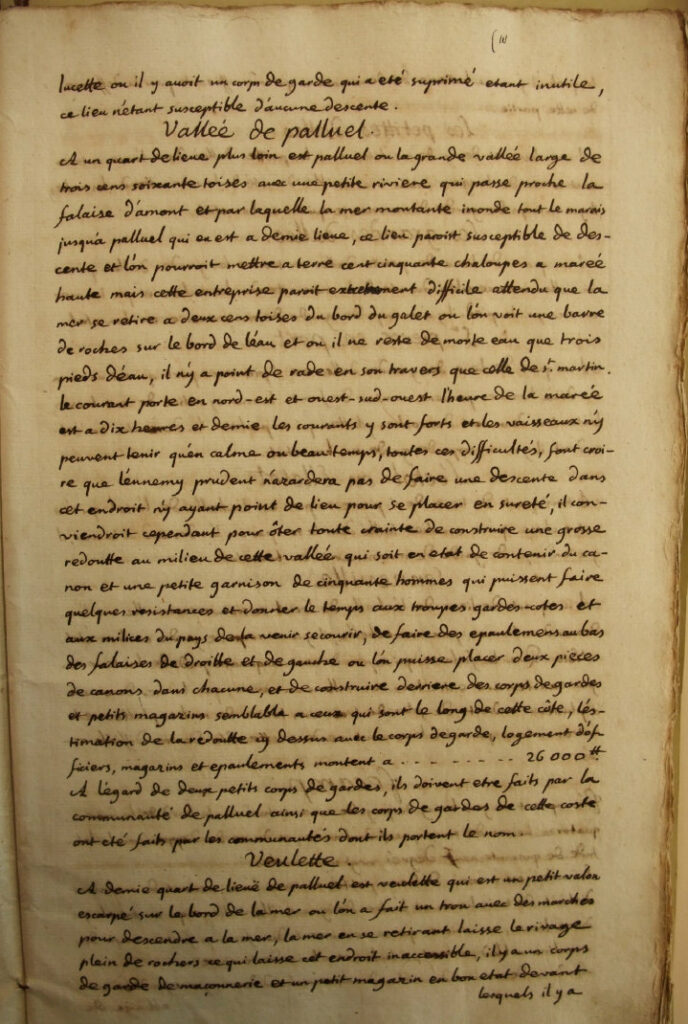 lucette ou il y avoit un corps de garde qui a eté suprimé etant inutile,
ce lieu n'étant susceptible d'aucune descente.
Valleé de palluel.
A un quart de lieue plus loin est palluel ou la grande valleé large de
trois cens soixante toises avec une petite riviere qui passe proche la
falaise d'amont et par laquelle la mer montante inonde tout le marais
jusqu'a palluel qui en est a demie lieue, ce lieu paroist susceptible de des-
cente et l'on pourroit mettre a terre cent cinquante chaloupes a mareé
haute mais cette entreprise paroit extremement difficile attendu que la
mer se retire a deux cens toises du bord du galet ou l'on voit une barre
de roches sur le bord de l'eau et ou il ne reste de morte eau que trois
pieds d'eau, il n'y a point de rade en son travers que celle de st. martin.
le courant porte en nord-est et ouest-sud-ouest l'heure de la mareé
est a dix heures et demie les courants y sont forts et les vaisseaux n'y
peuvent tenir qu'en calme ou beau temps, toutes ces difficultés, font croi-
re que l'ennemy prudent n'azardera pas de faire une descente dans
cet endroit n'y ayant point de lieu pour se placer en sureté, il con-
viendroit cependant pour ôter toute crainte de construire une grosse
redoutte au milieu de cette valleé qui soit en etat de contenir du ca-
non et une petite garnison de cinquante hommes qui puissent faire
quelques resistances et donner le temps aux troupes gardes-cotes et
aux milices du pays de la venir secourir, de faire des epaulemens au bas
des falaises de droitte et de gauche ou l'on puisse placer deux pieces
de canons dans chacune, et de construire derriere des corps de gardes
et petits magazins semblabla a ceux qui sont le long de cette côte, l'és-
timation de la redoutte cy dessus avec le corps de garde, logement d'of-
ficiers, magazins et epaulements montent a - - - - - - - - 26000 ₶
A l'egard de deux petits corps de gardes, ils doivent etre faits par la
communauté de palluel ainsi que les corps de gardes de cette coste
ont eté faits par les communautés dont ils portent le nom.
Veulette.
A demie quart de lieüe de palluel est veulette qui est un petit valon
escarpé sur le bord de la mer ou l'on a fait un trou avec des marches
pour descendre a la mer, la mer en se retirant laisse le rivage
plein de rochers ce qui laisse cet endroit inaccessible, il y a un corps
de garde de maçonnerie et un petit magazin en bon etat devant
lesquels il y a